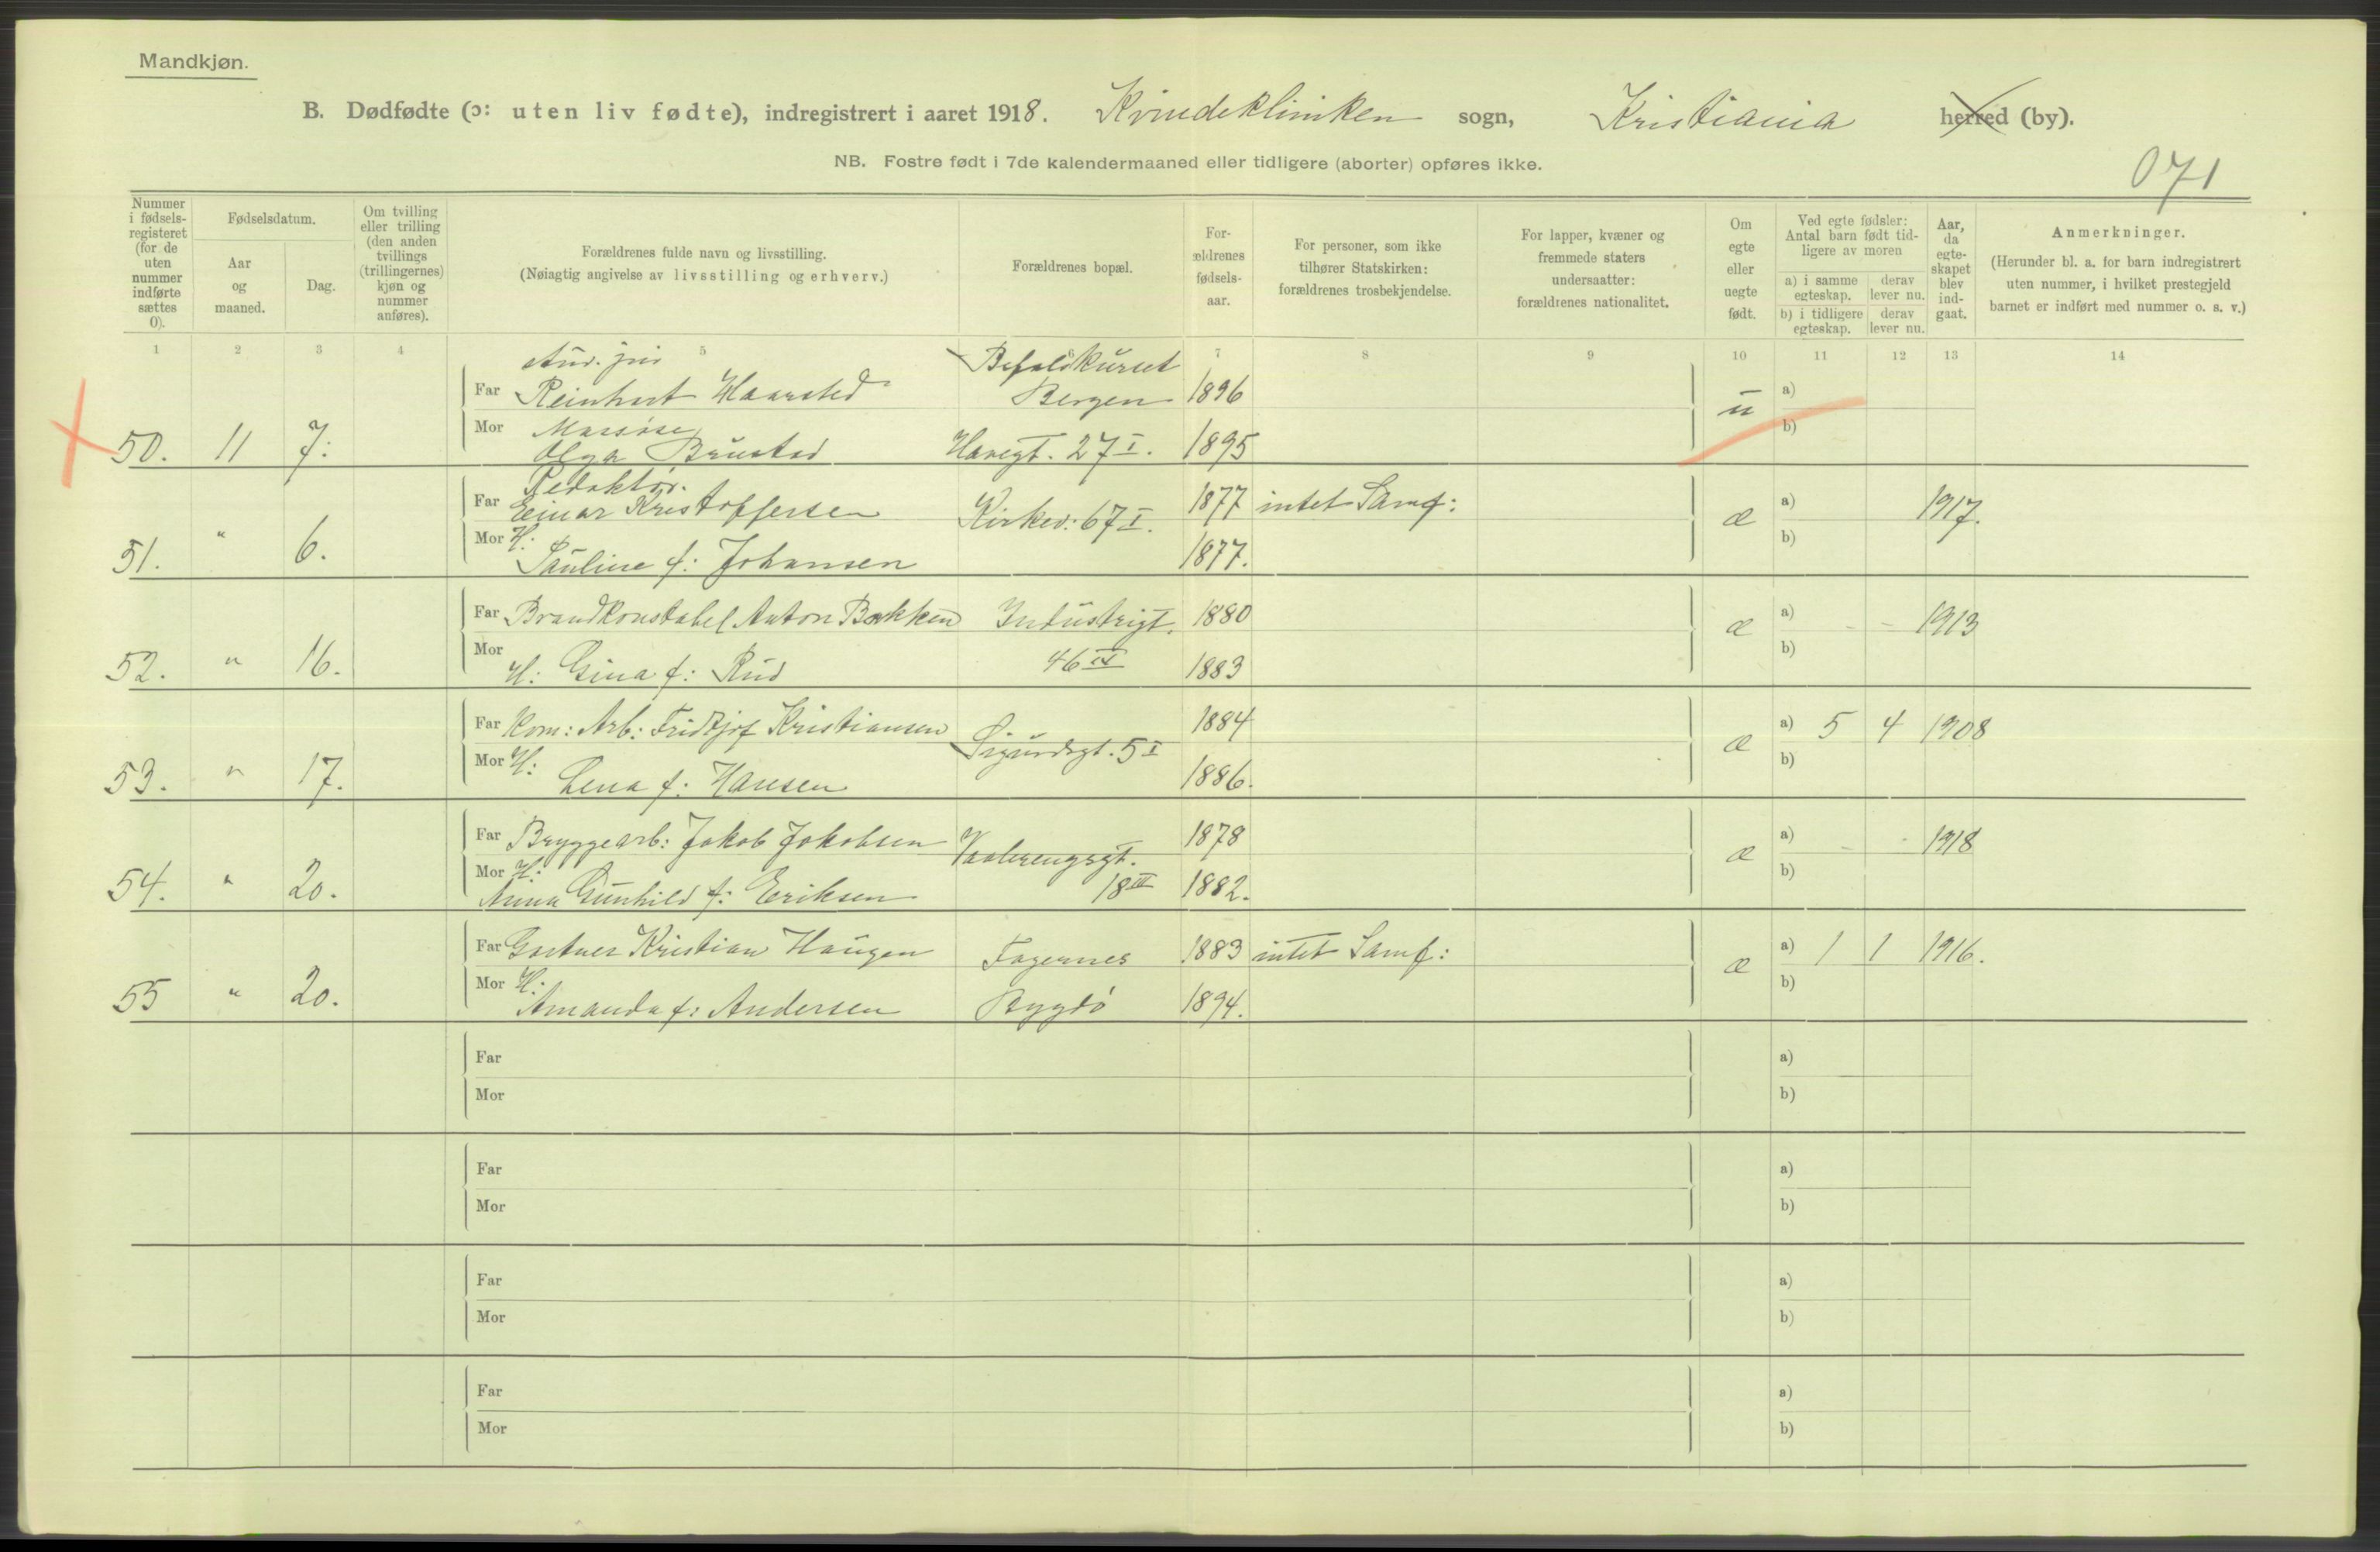 Mandkjøn.
B. Dødfødte (ɔ: uten liv fødte), indregistrert i aaret 1918. Kvindekliniken sogn, Kristiania herred (by).
NB. Fostre født i 7de kalendermaaned eller tidligere (aborter) opføres ikke.
071
Nummer i fødsels-registeret (for de uten nummer indførte sættes 0).
Fødselsdatum.
Aar og maaned.
Dag.
Om tvilling eller trilling (den anden tvillings (trillingernes) kjøn og nummer anføres).
Forældrenes fulde navn og livsstilling.
(Nøiagtig angivelse av livsstilling og erhverv.)
Forældrenes bopæl.
For-ældrenes fødsels-aar.
For personer, som ikke tilhører Statskirken: forældrenes trosbekjendelse.
For lapper, kvæner og fremmede staters undersaatter: forældrenes nationalitet.
Om egte eller uegte født.
Ved egte fødsler: Antal barn født tid-ligere av moren
a) i samme egteskap.
derav lever nu.
b) i tidligere egteskap.
derav lever nu.
Aar, da egte-skapet blev ind-gaat.
Anmerkninger.
(Herunder bl. a. for barn indregistrert uten nummer, i hvilket prestegjeld barnet er indført med nummer o. s. v.)
1 2 3 4 5 6 7 8 9 10 11 12 13 14
Far Reinhart Haarsted Bergen 1896 u a)
50. 11 7. Mor Olga Brustad 27 I. 1895 b)
Redaktør.
Far Einar Kristoffersen Kirkev: 67 I. 1877 intet Samf: æ a) 1917.
51. " 6. Mor H: Pauline f: Johansen 1877. b)
Far Brandkonstabel Anton Bakken Industrigt. 1880 æ a) - - 1913
52. " 16. Mor H: Gina f: Rud 46 IV 1883 b)
Far Kom: Arb: Fridtjof Kristiansen Sigurdsgt. 5 I 1884 æ a) 5 4 1908
53. " 17. Mor H: Lena f: Hansen 1886. b)
Far Bryggearb: Jakob Jakobsen Vaalerengsgt. 1878 æ a) - - 1918
54. " 20. Mor H: Anna Gunhild f: Eriksen 18 III 1882. b)
Far Gartner Kristian Haugen Fagernes 1883 intet Samf: æ a) 1 1 1916.
55 " 20. Mor H: Amanda f: Andersen Bygdö 1894. b)
Far a)
Mor b)
Far a)
Mor b)
Far a)
Mor b)
Far a)
Mor b)